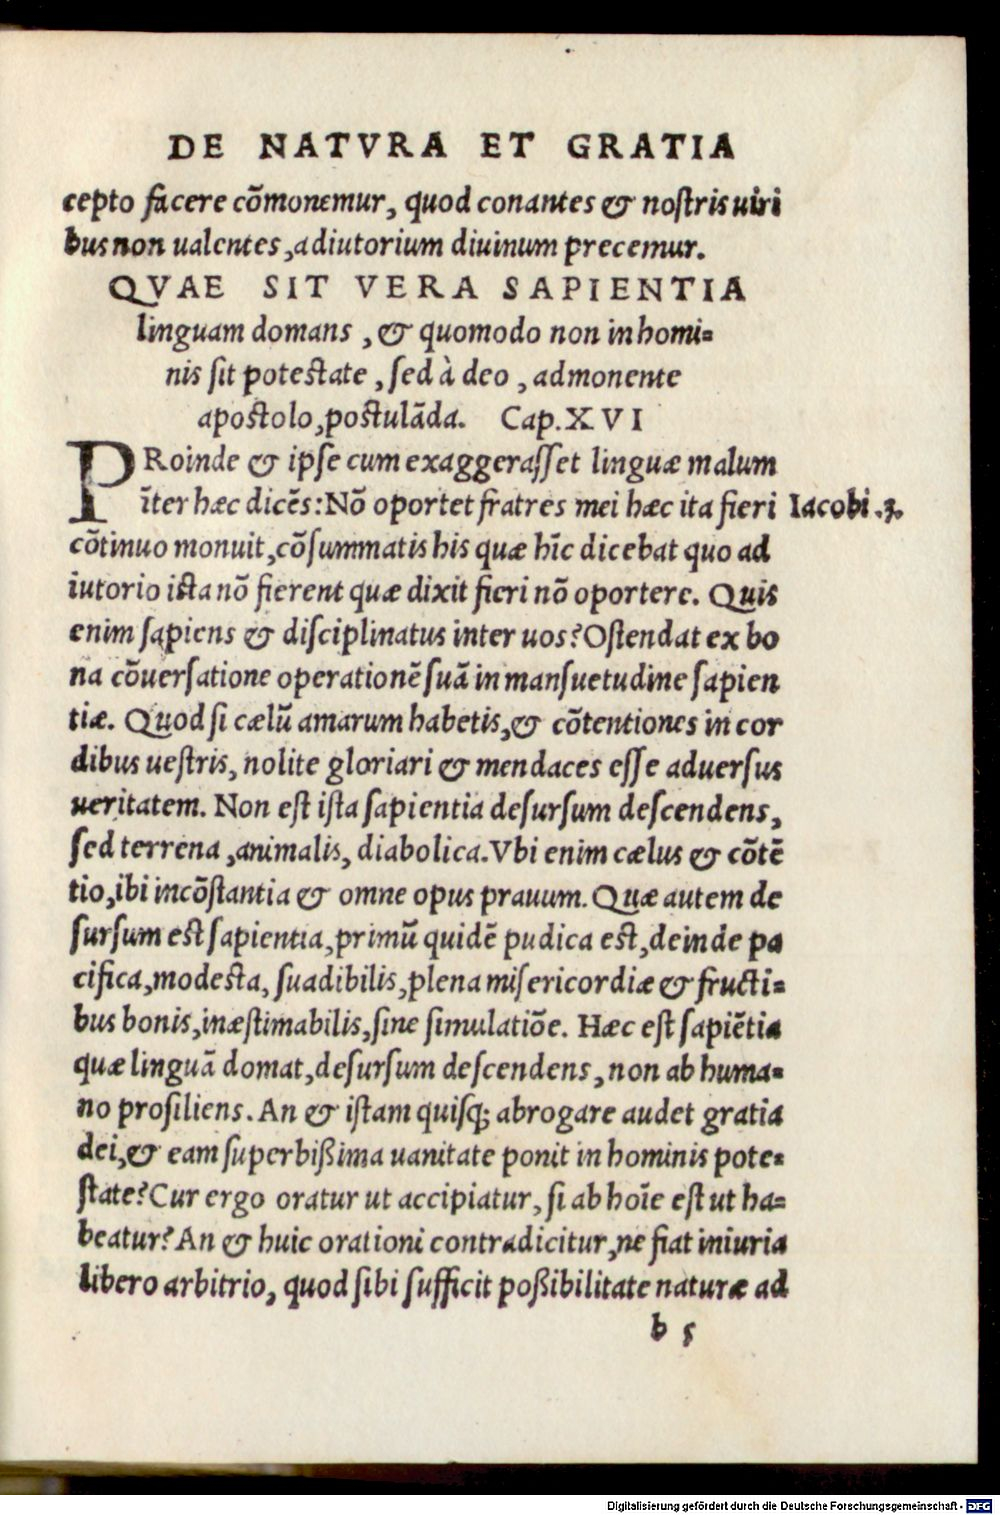 DE NATVRA ET GRATIA
cepto facere cõmonemur, quod conantes & nostris uiri
bus non ualentes, adiutorium diuinum precemur.
QVAE SIT VERA SAPIENTIA
linguam domans, & quomodo non in homi=
nis sit potestate, sed à deo, admonente
apostolo, postulãda. Cap. XVI
PRoinde & ipse cum exaggerasset linguæ malum
ĩter hæc dicẽs: Nõ oportet fratres mei hæc ita fieri Iacobi .3.
cõtinuo monuit, cõsummatis his quæ hĩc dicebat quo ad
iutorio ista nõ fierent quæ dixit fieri nõ oportere. Quis
enim sapiens & disciplinatus inter uos? Ostendat ex bo
na cõuersatione operationẽ suã in mansuetudine sapien
tiæ. Quod si cælũ amarum habetis, & cõtentiones in cor
dibus uestris, nolite gloriari & mendaces esse aduersus
ueritatem. Non est ista sapientia desursum descendens,
sed terrena, animalis, diabolica. Vbi enim cælus & cõtẽ
tio, ibi incõstantia & omne opus prauum. Quæ autem de
sursum est sapientia, primũ quidẽ pudica est, deinde pa
cifica, modesta, suadibilis, plena misericordiæ & fructi=
bus bonis, inæstimabilis, sine simulatiõe. Hæc est sapiẽtia
quæ linguã domat, desursum descendens, non ab huma=
no prosiliens. An & istam quisq; abrogare audet gratia
dei, & eam superbißima uanitate ponit in hominis pote=
state? Cur ergo oratur ut accipiatur, si ab hoĩe est ut ha=
beatur? An & huic orationi contradicitur, ne fiat iniuria
libero arbitrio, quod sibi sufficit poßibilitate naturæ ad
b 5
Digitalisierung gefördert durch die Deutsche Forschungsgemeinschaft - DFG